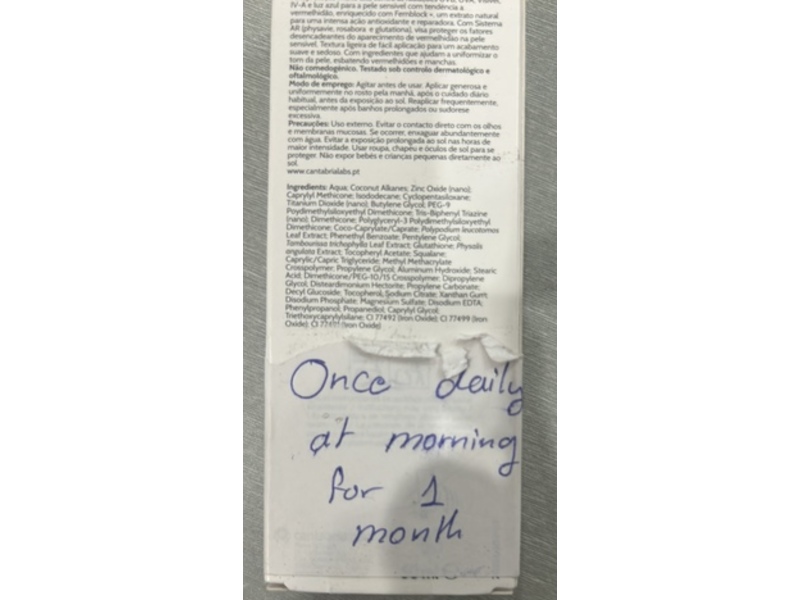 IV-A e luz azul para a pele sensível com tendência a
vermelhidão, enriquecido com Fernblock +, um extrato natural
para uma intensa ação antioxidante e reparadora. Com Sistema
AR (physavie, rosabora e glutationa), visa proteger os fatores
desencadeantes do aparecimento de vermelhidão na pele
sensível. Textura ligeira de fácil aplicação para um acabamento
suave e sedoso. Com ingredientes que ajudam a uniformizar o
tom da pele, esbatendo vermelhidões e manchas.
Não comedogénico. Testado sob controlo dermatológico e
oftalmológico.
Modo de emprego: Agitar antes de usar. Aplicar generosa e
uniformemente no rosto pela manhã, após o cuidado diário
habitual, antes da exposição ao sol. Reaplicar frequentemente,
especialmente após banhos prolongados ou sudorese
excessiva.
Precauções: Uso externo. Evitar o contacto direto com os olhos
e membranas mucosas. Se ocorrer, enxaguar abundantemente
com água. Evitar a exposição prolongada ao sol nas horas de
maior intensidade. Usar roupa, chapéu e óculos de sol para se
proteger. Não expor bebés e crianças pequenas diretamente ao
sol.
www.cantabrialabs.pt
Ingredients: Aqua; Coconut Alkanes; Zinc Oxide (nano);
Caprylyl Methicone; Isododecane; Cyclopentasiloxane;
Titanium Dioxide (nano); Butylene Glycol; PEG-9
Polydimethylsiloxyethyl Dimethicone; Tris-Biphenyl Triazine
(nano); Dimethicone; Polyglyceryl-3 Polydimethylsiloxyethyl
Dimethicone; Coco-Caprylate/Caprate; Polypodium leucotomos
Leaf Extract; Phenethyl Benzoate; Pentylene Glycol;
Tambourissa trichophylla Leaf Extract; Glutathione; Physalis
angulata Extract; Tocopheryl Acetate; Squalane;
Caprylic/Capric Triglyceride; Methyl Methacrylate
Crosspolymer; Propylene Glycol; Aluminum Hydroxide; Stearic
Acid; Dimethicone/PEG-10/15 Crosspolymer; Dipropylene
Glycol; Disteardimonium Hectorite; Propylene Carbonate;
Decyl Glucoside; Tocopherol; Sodium Citrate; Xanthan Gum;
Disodium Phosphate; Magnesium Sulfate; Disodium EDTA;
Phenylpropanol; Propanediol; Caprylyl Glycol;
Triethoxycaprylylsilane; CI 77492 (Iron Oxide); CI 77499 (Iron
Oxide); CI 77491 (Iron Oxide)
Once daily
at morning
for 1
month